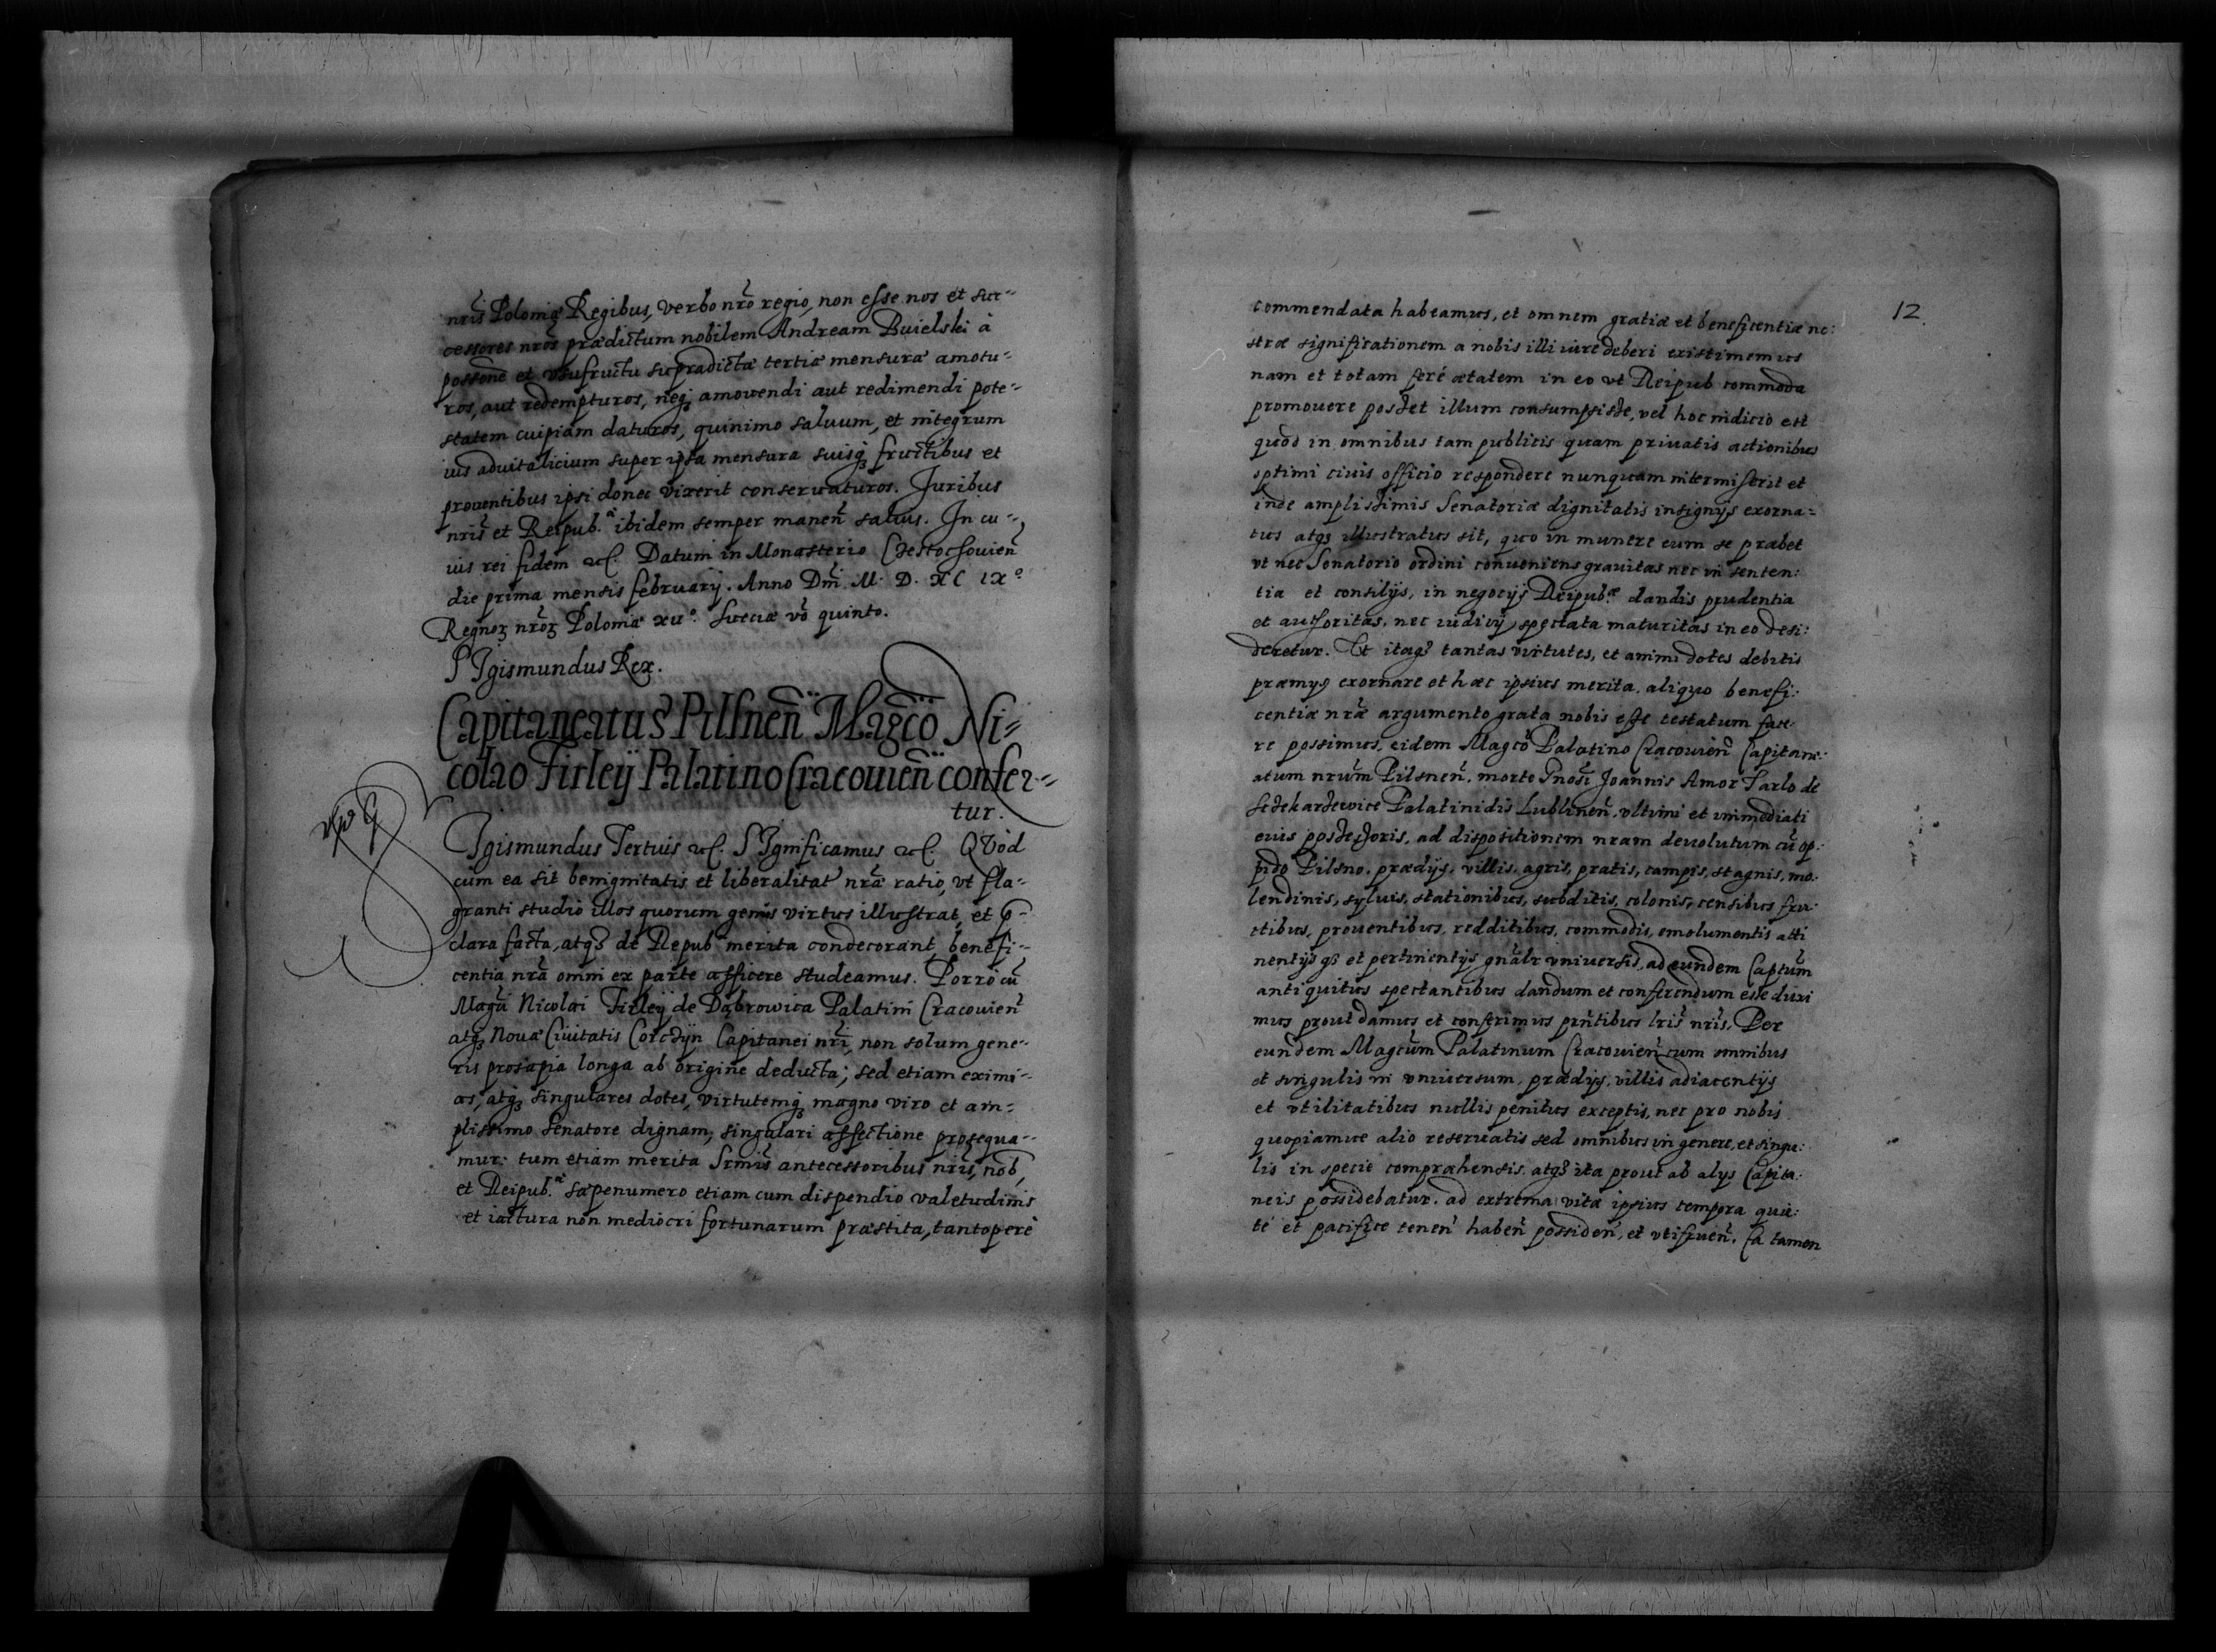 nrĩs Poloniæ Regibus, verbo nrõ regio, non esse nos et suc-
cessores nrõs prædictum nobilem Andream Buielski à
possone et vsufructu supradictæ tertiæ mensuræ amotu-
ros, aut redempturos, neqꝫ amouendi aut redimendi pote-
statem cuipiam daturos, quinimo saluum, et integrum
ius aduitalicium super ipsa mensura suisqꝫ fructibus et
prouentibus ipsi donec vixerit conseruaturos. Juribus
nrĩs et Reipub.æ ibidem semper maneñ saluis. In cu-
ius rei fidem etc. Datum in Monasterio Czestochouieñ
die prima mensis february. Anno Dñi M. D. XC IXº
Regnoꝝ nrõꝝ Poloniæ xııº. Sueciæ võ quinto.
SIgismundus Rex.
Capitaneatus Pilsneñ Magcõ Ni-
colao Firleÿ Palatino Cracouieñ confer-
tur.
SIgismundus Tertius etc. SIgnificamus etc. QVod
cum ea sit benignitatis et liberalitat nrã ratio, vt fla-
granti studio illos quorum genus virtus illustrat, et p-
clara facta, atqꝫ de Repub merita condecorant, benefi-
centia nrã omni ex parte afficere studeamus. Porro cũ
Magci Nicolai Firleÿ de Dąbrowica Palatini Cracouieñ
atqꝫ Nouæ Ciuitatis Corczÿn Capitanei nrĩ, non solum gene-
ris prosapia longa ab origine deducta; sed etiam eximi-
as, atqꝫ singulares dotes, virtutemqꝫ magno viro et am-
plissimo Senatore dignam, singulari affectione prosequa-
mur: tum etiam merita Srmĩs antecessoribus nrĩs, nob,
et Reipub.æ sæpenumero etiam cum dispendio valetudinis
et iactura non mediocri fortunarum præstita, tantoperè
12.
commendata habeamus, et omnem gratiæ et beneficentiæ no:
stræ significationem a nobis illi iure deberi existimemus
nam et totam ferè ætatem in eo vt Reipub commoda
promouere posset illum consumpsisse, vel hoc indicio est
quod in omnibus tam publicis quam priuatis actionibus
optimi ciuis officio respondere nunquam intermiserit et
inde amplissimis Senatoriæ dignitatis insignÿs exorna=
tus atqꝫ illustratus sit, quo in munere eum se præbet
vt nec Senatorio ordini conueniens grauitas nec in senten:
tia et consilÿs, in negocÿs Reipub.æ dandis prudentia
et authoritas, nec iudicÿ spectata maturitas in eo desi:
deretur. Vt itaqꝫ tantas virtutes, et animi dotes debitis
præmÿs exornare et hæc ipsius merita aliquo benefi:
centiæ nræ argumento grata nobis esse testatum face:
re possimus, eidem Magcõ Palatino Cracouieñ Capitane:
atum nrũm Pilsneñ, morte Gnosĩ Joannis Amor Tarlo de
Sczekarzewice Palatinidis Lublineñ, vltimi et immediati
eius possessoris, ad dispositionem nram deuolutum cũ op:
pido Pilsno, prædÿs, villis, agris, pratis, campis, stagnis, mo:
lendinis, syluis, stationibus, subditis, colonis, censibus fru:
ctibus, prouentibus, redditibus, commodis, emolumentis atti
nentÿsqꝫ et pertinentÿs gnãlr vniuersis, ad eundem Captum
antiquitus spectantibus dandum et conferendum esse duxi
mus prout damus et conferimus pñtibus lrĩs nrĩs. Per
eundem Magcũm Palatinum Cracouieñ cum omnibus
et singulis in vniuersum, prædÿs, villis adiacentÿs
et vtilitatibus nullis penitus exceptis, nec pro nobis
quopiamue alio reseruatis sed omnibus in genere, et singu:
lis in specie compræhensis atqꝫ ita prout ab alÿs Capita:
neis possidebatur, ad extrema vitæ ipsius tempora quie:
tè et pacifice teneñ habeñ possideñ, et vtifrueñ. Ea tamen